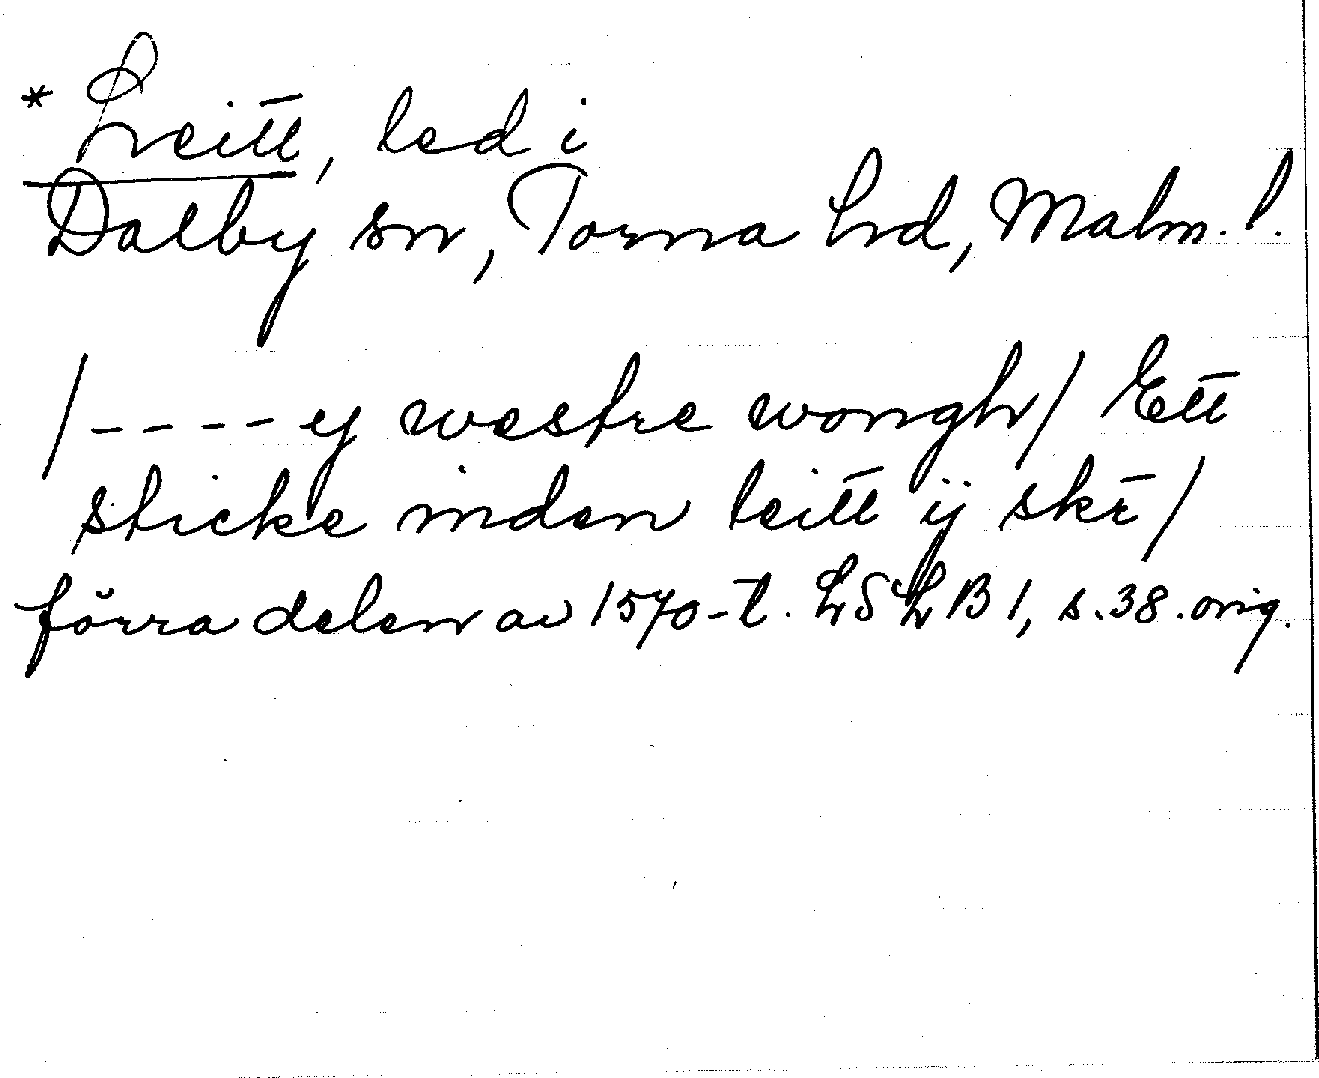 * Leitt, led i
Dalby sn, Torna hd, Malm. l.
/---- ij westre wongh/ Ett
sticke inden leitt ij skē/
förra delen av 1570-t. LSLB 1, s. 38. orig.